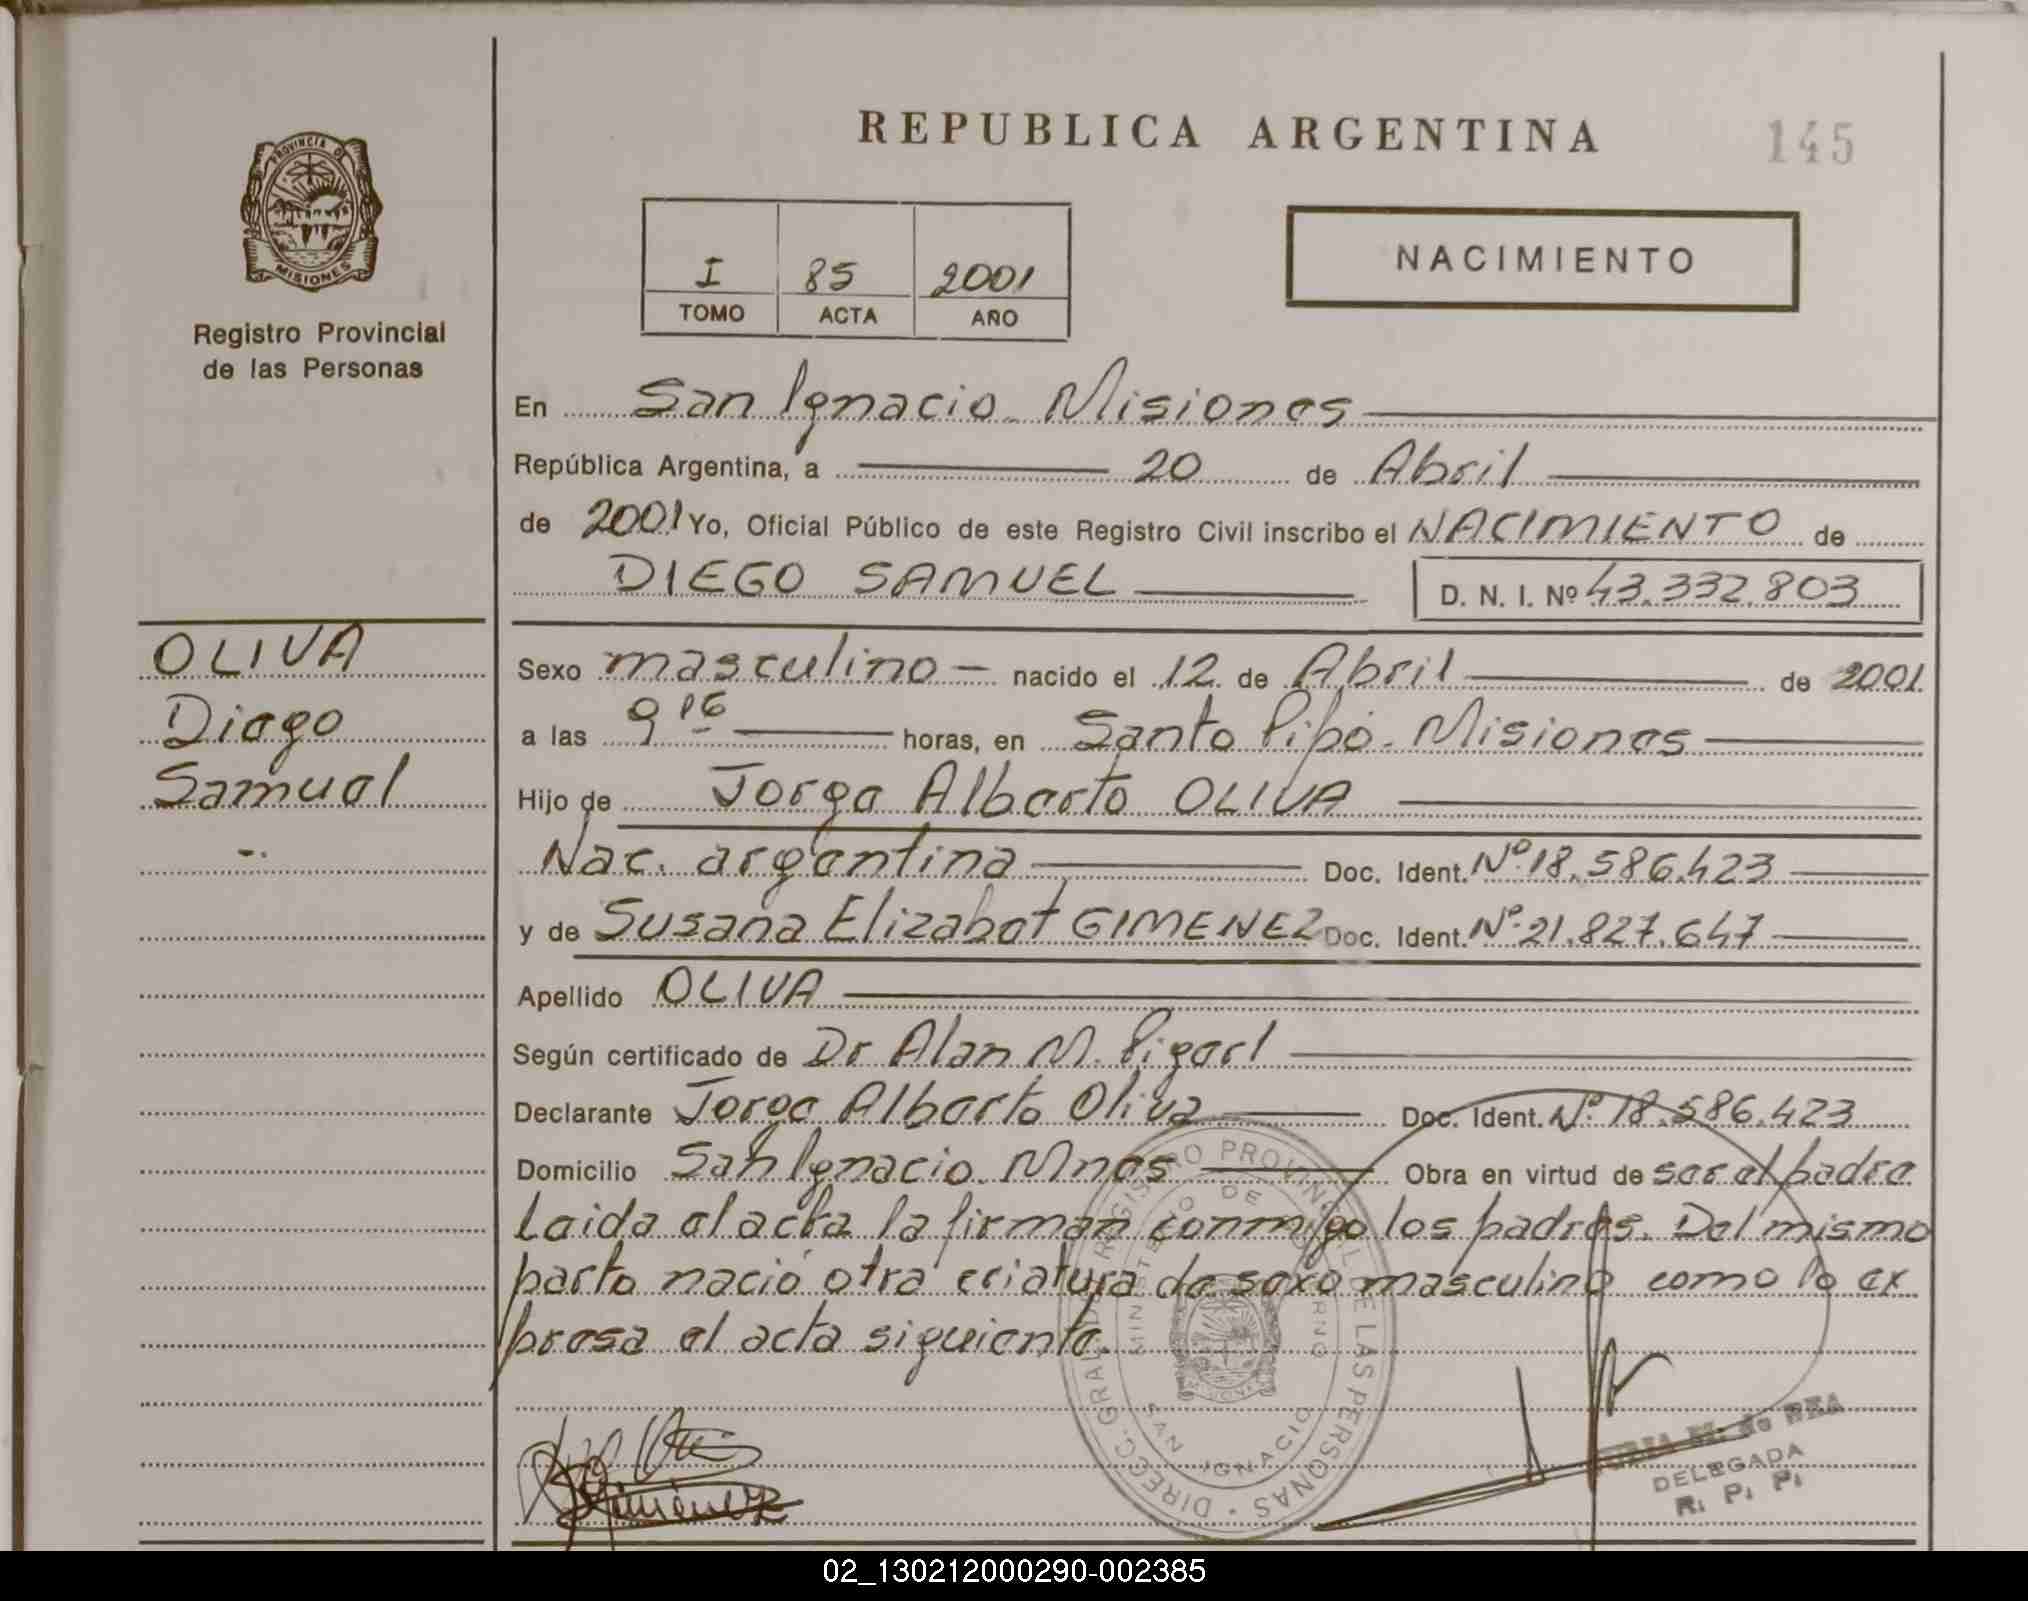 PROVINCIA DE
MISIONES
Registro Provincial
de las Personas
REPUBLICA ARGENTINA
145
I 85 2001
TOMO ACTA AÑO
NACIMIENTO
En San Ignacio Misiones
República Argentina, a 20 de Abril
de 2001 Yo, Oficial Público de este Registro Civil inscribo el NACIMIENTO de
DIEGO SAMUEL D. N. I. Nº 43.332.803
OLIVA
Diego
Samuel
Sexo masculino nacido el 12 de Abril de 2001
a las 9 16 horas, en Santo Pipó. Misiones
Hijo de Jorge Alberto OLIVA
Nac. argentina Doc. Ident. Nº 18.586.423
y de Susana Elizabet GIMENEZ Doc. Ident. Nº 21.827.647
Apellido OLIVA
Según certificado de Dr Alan M.
Declarante Jorge Alberto Oliva Doc. Ident. Nº 18.586.423
Domicilio San Ignacio. Mnes Obra en virtud de ser el padre
Leida el acta la firman conmigo los padres. Del mismo
parto nació otra criatura de sexo masculino como lo ex
presa el acta siguiente.
DIRECC. GRAL. DEL REGISTRO PROVINCIAL DE LAS PERSONAS
MINISTERIO DE GOBIERNO
SAN IGNACIO
Gimenez
M. de REA
DELEGADA
R. P. P.
02_130212000290-002385